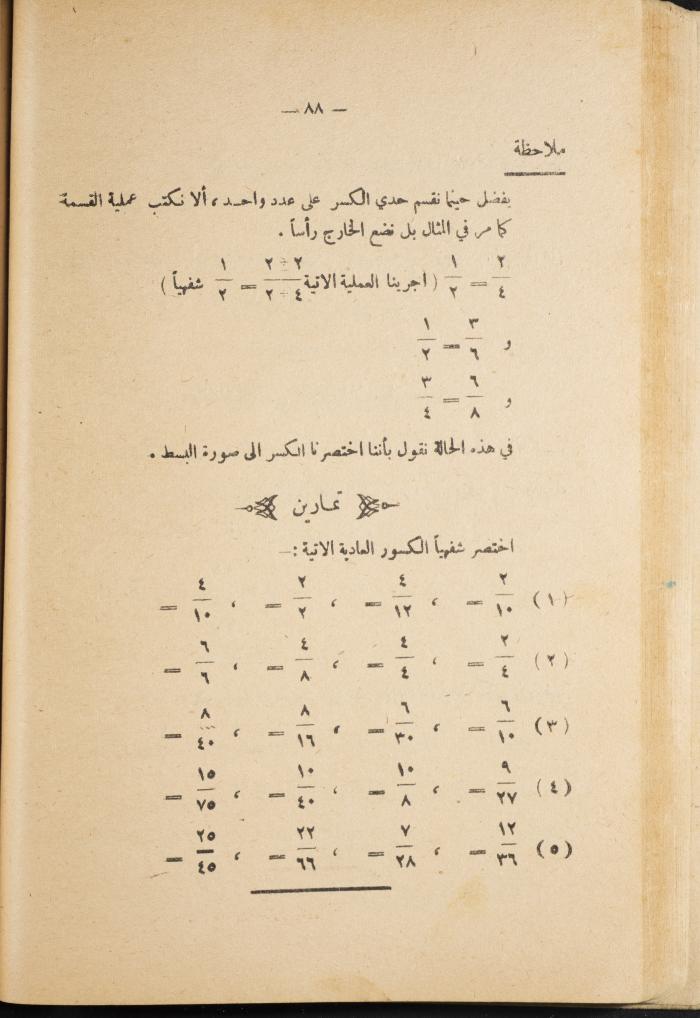 — ٨٨ —
ملاحظة
يفضل حينما نقسم حدي الكسر على عدد واحد ، ألا نكتب عملية القسمة
كما مر في المثال بل نضع الخارج رأساً .
٢/٤ = ١/٢ ( اجرينا العملية الاتية ٢ ÷ ٢ / ٤ ÷ ٢ = ١/٢ شفهياً )
و ٣/٦ = ١/٢
و ٦/٨ = ٣/٤
في هذه الحالة نقول بأننا اختصرنا الكسر الى صورة البسط .
تمارين
اختصر شفهياً الكسور العادية الاتية :—
(١) ٢/١٠ = ، ٤/١٢ = ، ٢/٢ = ، ٤/١٠ =
(٢) ٢/٤ = ، ٤/٤ = ، ٤/٨ = ، ٦/٦ =
(٣) ٦/١٠ = ، ٦/٣٠ = ، ٨/١٦ = ، ٨/٤٠ =
(٤) ٩/٢٧ = ، ١٠/٨ = ، ١٠/٤٠ = ، ١٥/٧٥ =
(٥) ١٢/٣٦ = ، ٧/٢٨ = ، ٢٢/٦٦ = ، ٢٥/٤٥ =